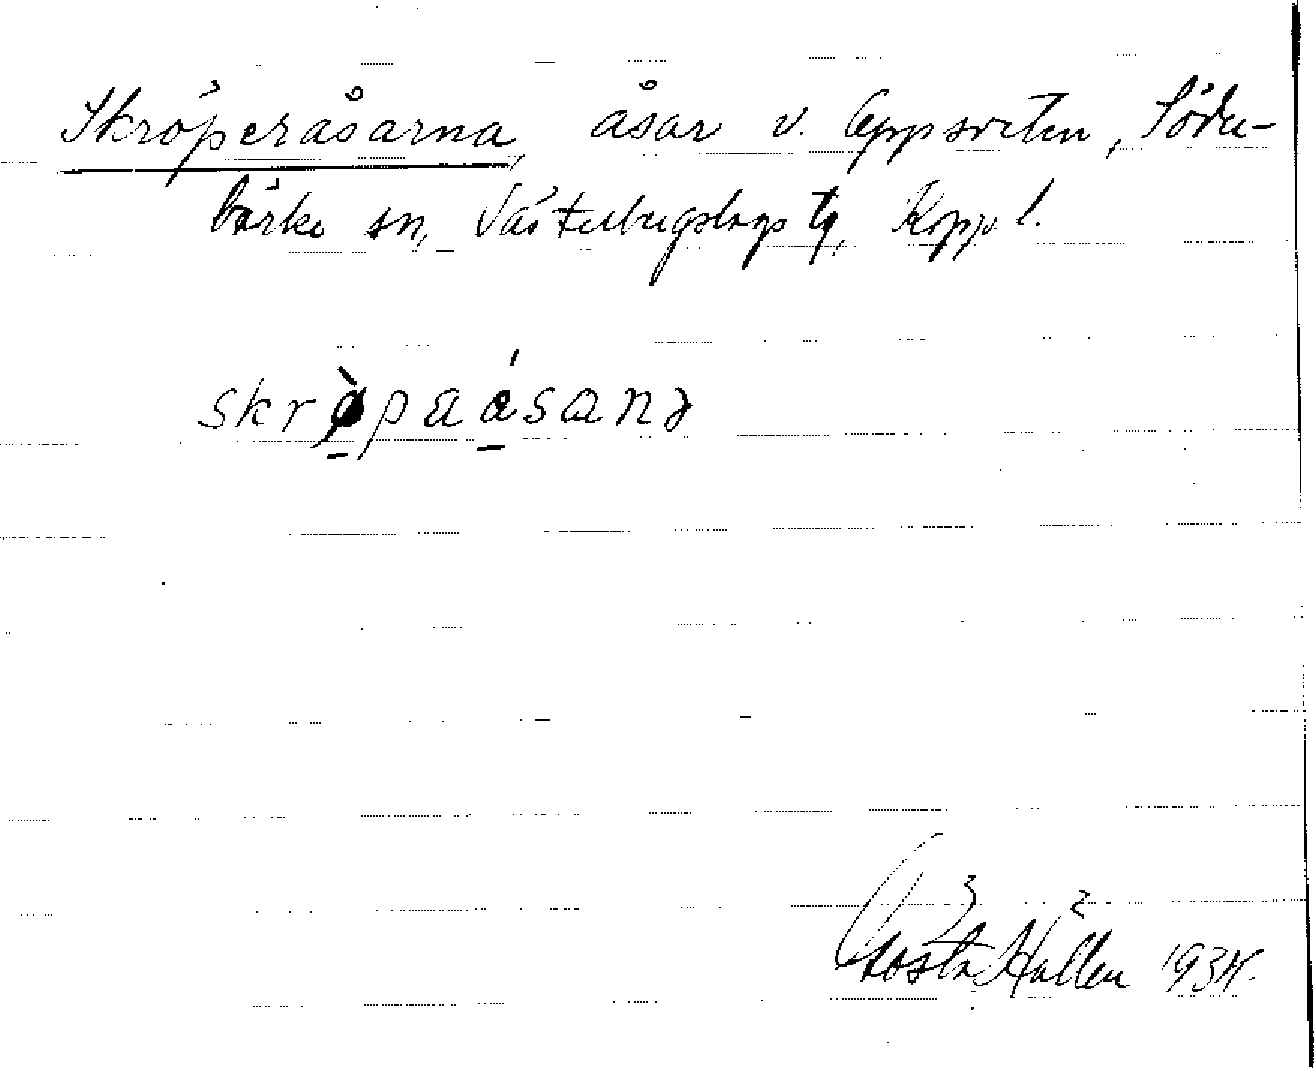 Skröperåsarna, åsar v. Uppsveten, Söder-
bärke sn, Västerbergslags tg, Kopp. l.
skrø̀paåsanə
Gösta Hallén 1934.